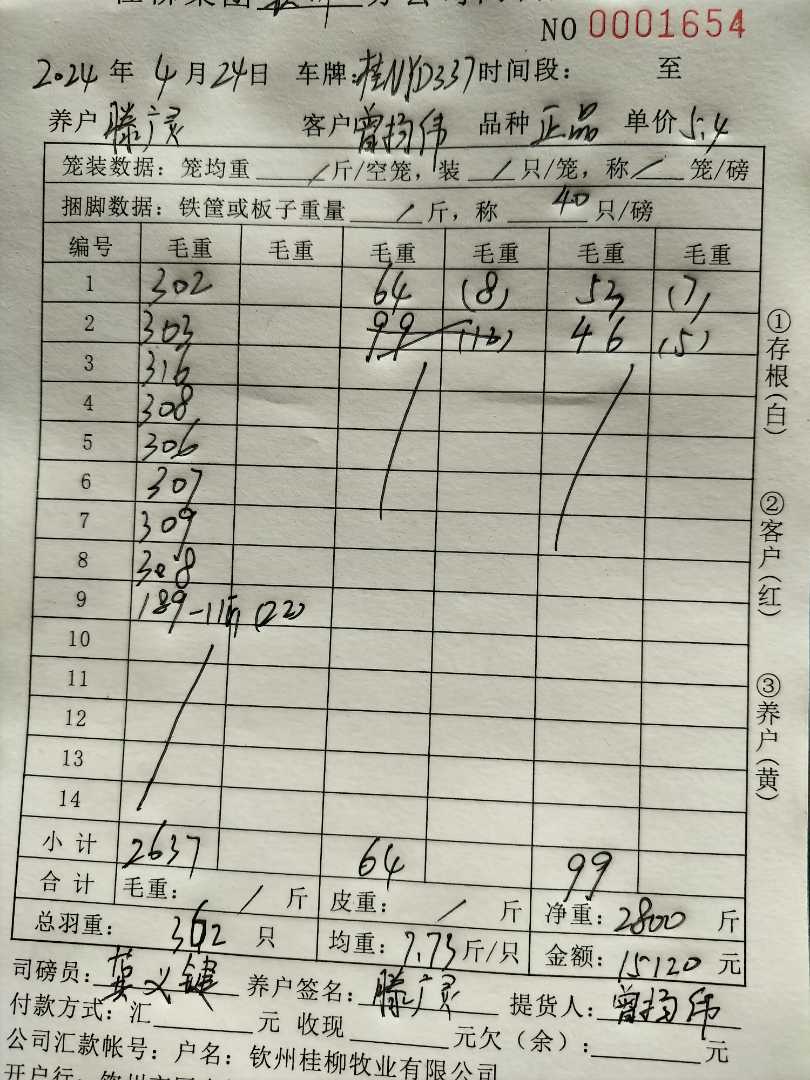 NO 0001654
2024 年 4 月 24 日 车牌: 桂NYD337 时间段: 至
养户 滕广灵 客户 曾杨伟 品种 正品 单价 5.4
笼装数据: 笼均重 / 斤/空笼, 装 / 只/笼, 称 / 笼/磅
捆脚数据: 铁筐或板子重量 / 斤, 称 40 只/磅
编号 毛重 毛重 毛重 毛重 毛重 毛重
1 302 64 (8) 53 (7)
2 303 99 (12) 46 (5)
3 316
4 308
5 306
6 307
7 309
8 308
9 189-11斤 (22)
10
11
12
13
14
小计 2637 64 99
合计 毛重: / 斤 皮重: / 斤 净重: 2800 斤
总羽重: 362 只 均重: 7.73 斤/只 金额: 15120 元
司磅员: 莫义键 养户签名: 滕广灵 提货人: 曾杨伟
付款方式: 汇 元 收现 元欠(余): 元
公司汇款帐号: 户名: 钦州桂柳牧业有限公司
开户行:
①存根(白)
②客户(红)
③养户(黄)